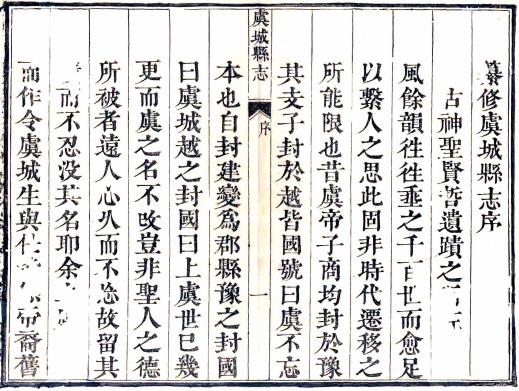 纂修虞城縣志序
古神聖賢哲遺蹟之
風餘韻往往垂之千百世而愈足
以繫人之思此固非時代遷移之
所能限也昔虞帝子商均封於豫
其支子封於越皆國號曰虞不忘
虞城縣志
序
一
本也自封建變爲郡縣豫之封國
曰虞城越之封國曰上虞世已幾
更而虞之名不改豈非聖人之德
所被者遠人心久而不忘故留其
而不忍没其名耶余
而作令虞城生與仕 帝裔舊